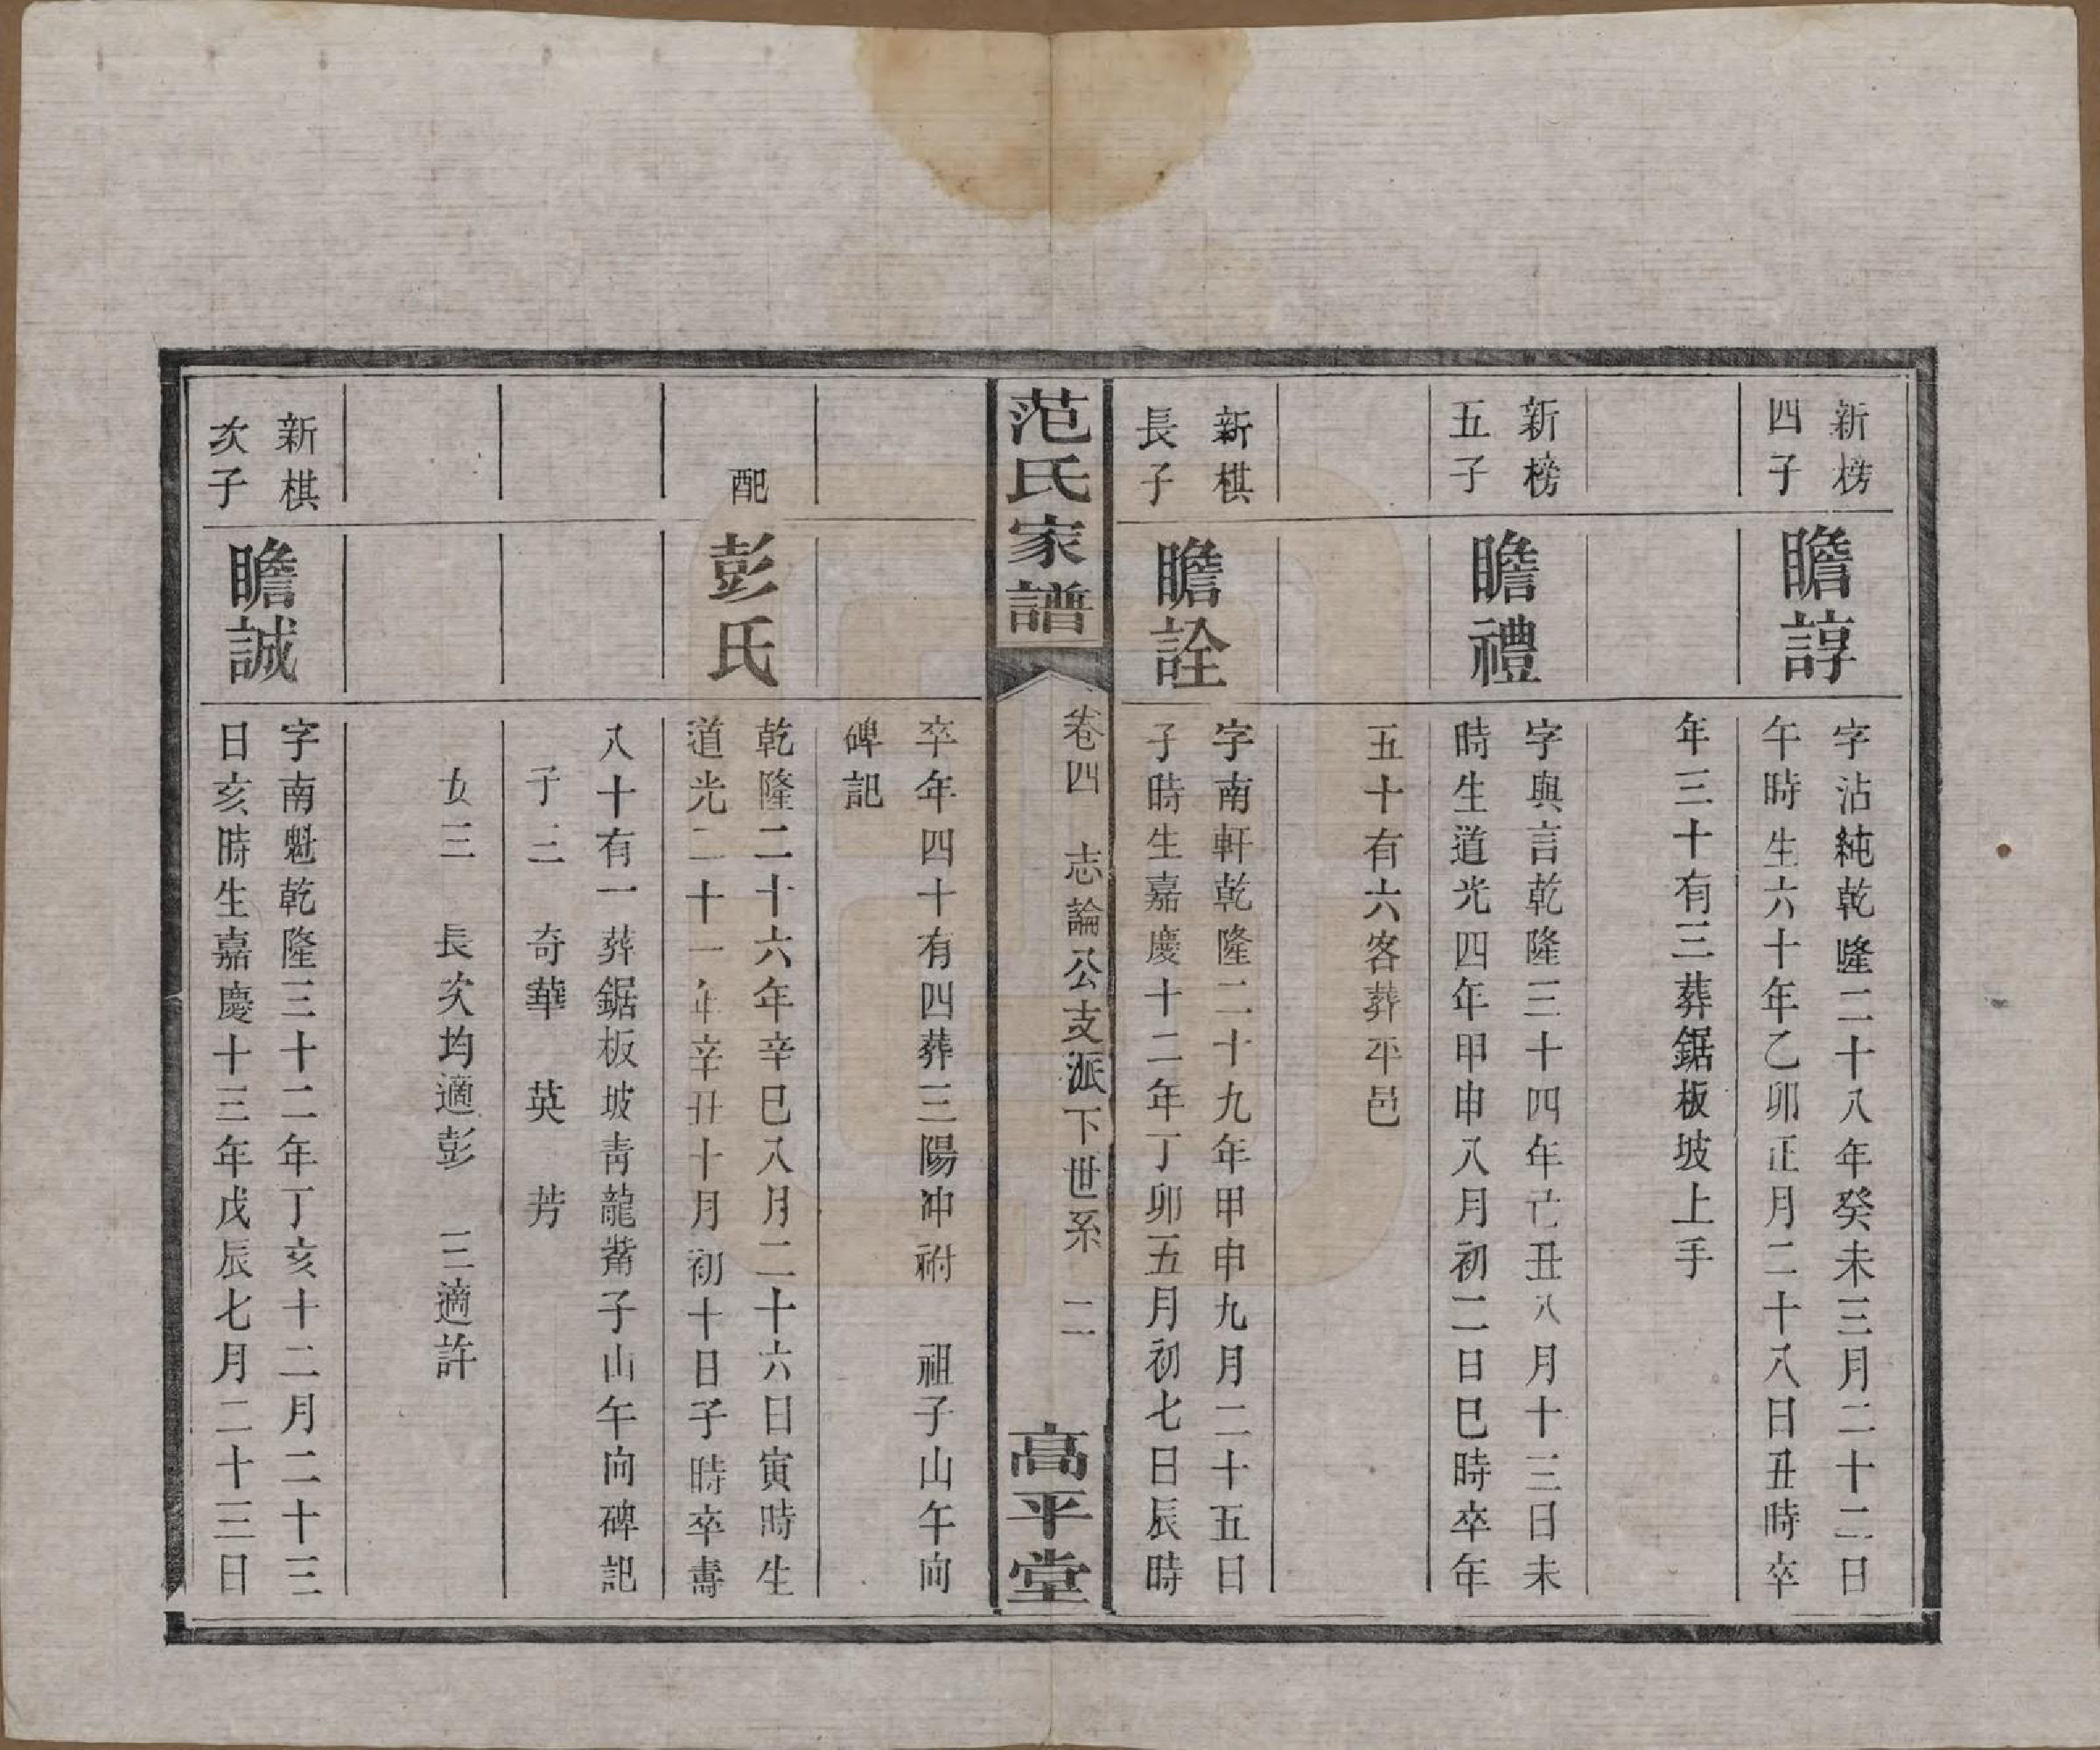 新榜
四子
瞻諄
字沾純乾隆二十八年癸未三月二十二日
午時生六十年乙卯正月二十八日丑時卒
年三十有三葬鋸板坡上手
新榜
五子
瞻禮
字與言乾隆三十四年己丑八月十三日未
時生道光四年甲申八月初二日巳時卒年
五十有六客葬平邑
新棋
長子
瞻詮
字南軒乾隆二十九年甲申九月二十五日
子時生嘉慶十二年丁卯五月初七日辰時
范氏家譜
卷四 志論公支派下世系 二
高平堂
卒年四十有四葬三陽冲祔 祖子山午向
碑記
配
彭氏
乾隆二十六年辛巳八月二十六日寅時生
道光二十一年辛丑十月初十日子時卒壽
八十有一葬鋸板坡青龍觜子山午向碑記
子三 奇華 英 芳
女三 長次均適彭 三適許
新棋
次子
瞻誠
字南魁乾隆三十二年丁亥十二月二十三
日亥時生嘉慶十三年戊辰七月二十三日